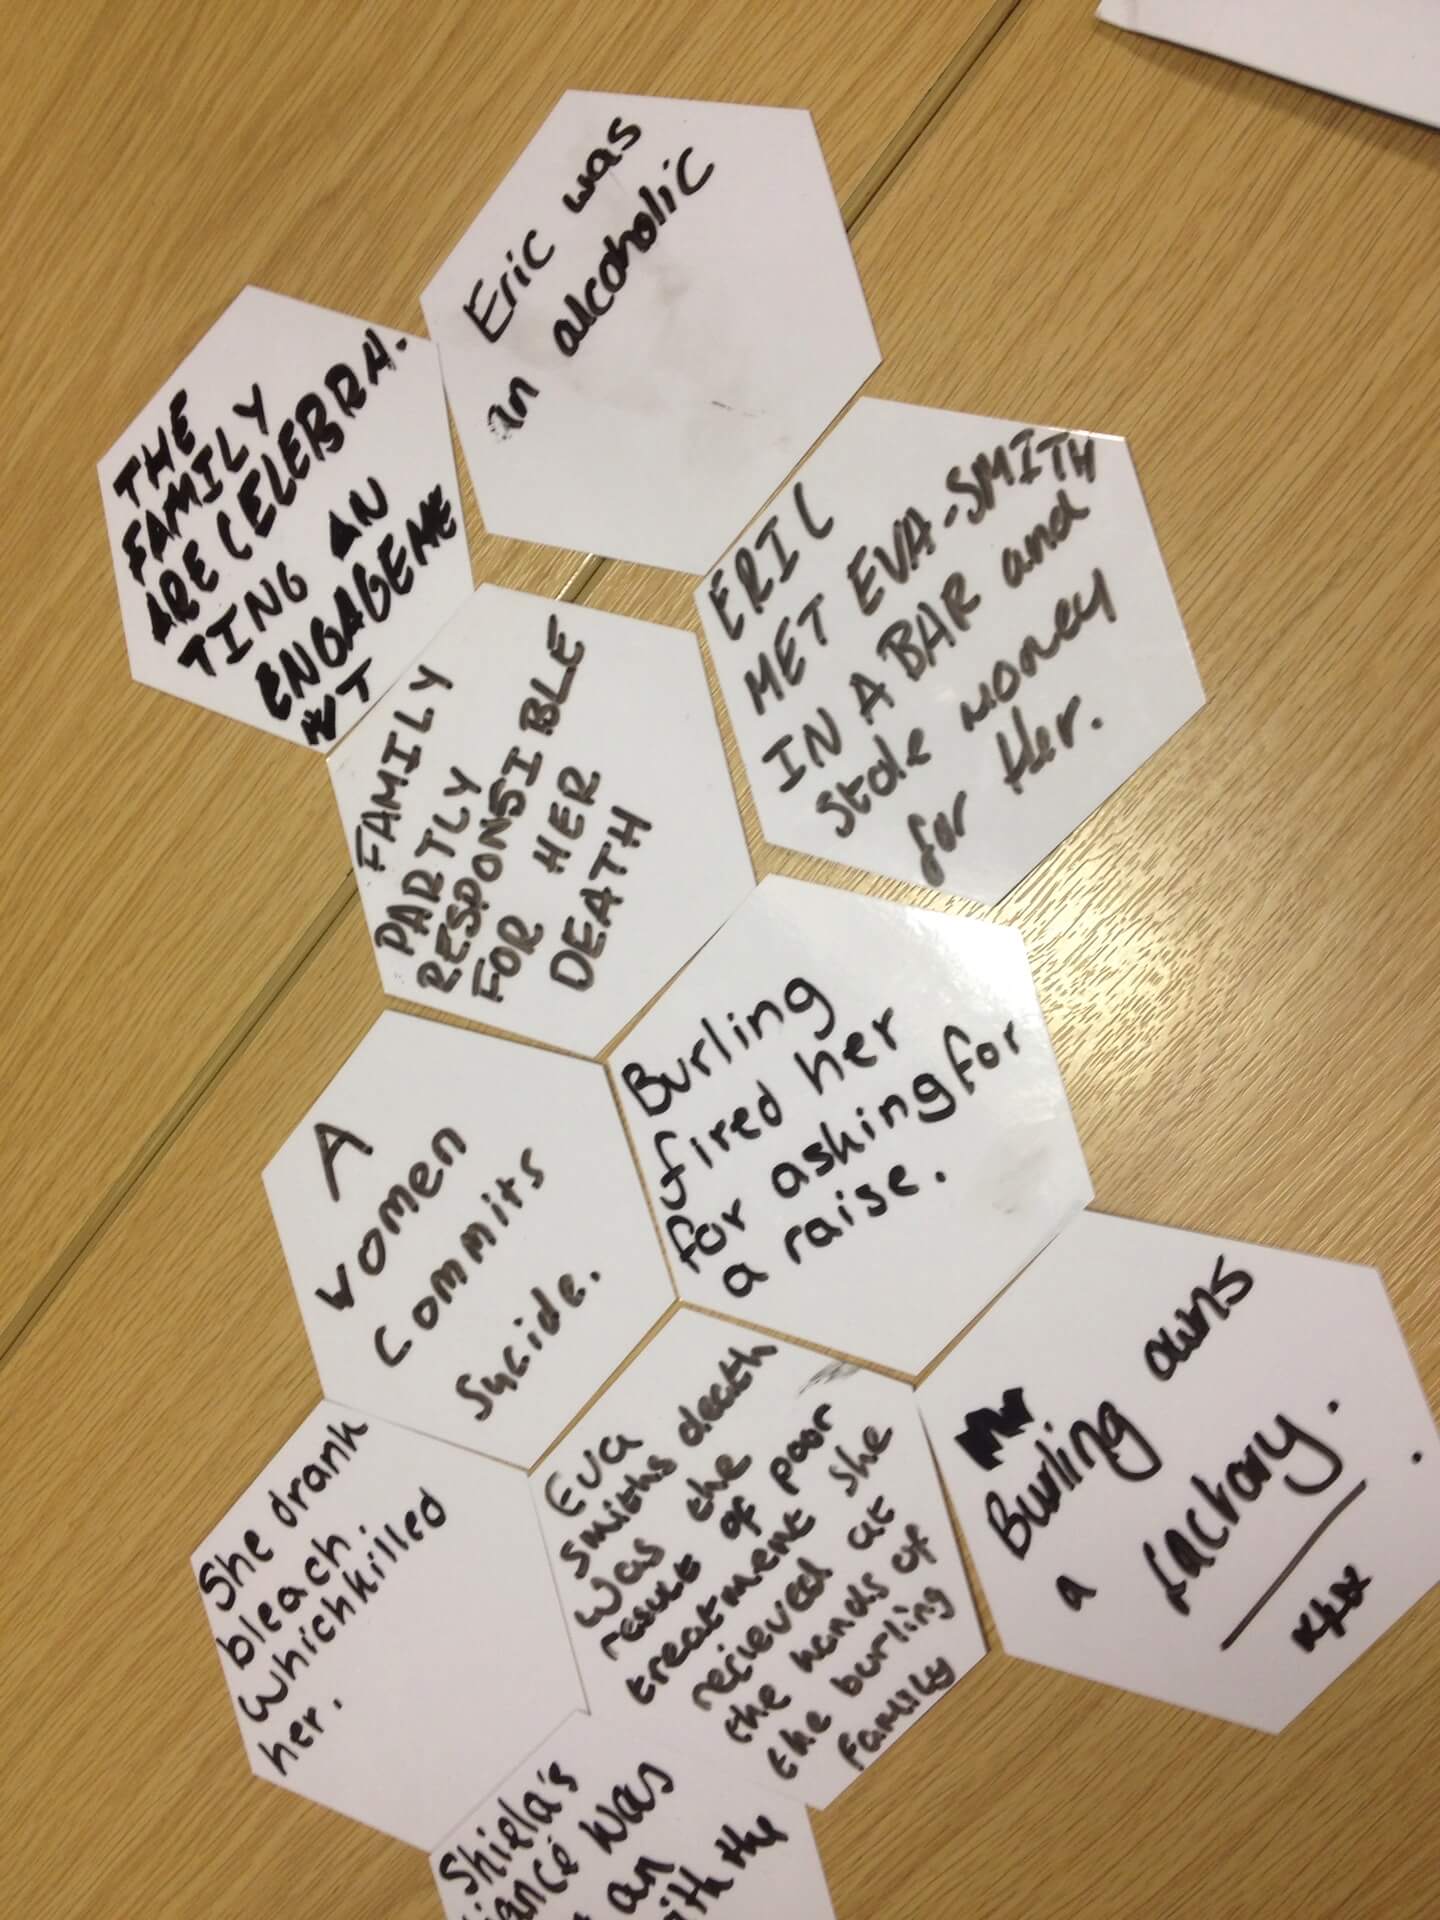 Eric was
an alcoholic
THE
FAMILY
ARE CELEBRA-
TING AN
ENGAGEME
NT
ERIC
MET EVA-SMITH
IN A BAR and
Stole money
for Her.
FAMILY
PARTLY
RESPONSIBLE
FOR HER
DEATH
Burling
fired her
for asking for
a raise.
A
women
commits
Suicide.
Burling owns
a factory.
She drank
bleach.
Which killed
her.
Eva
Smiths death
was the
result of poor
treatment she
recieved at
the hands of
the burling
family
Shiela's
iancé was
an
ith the